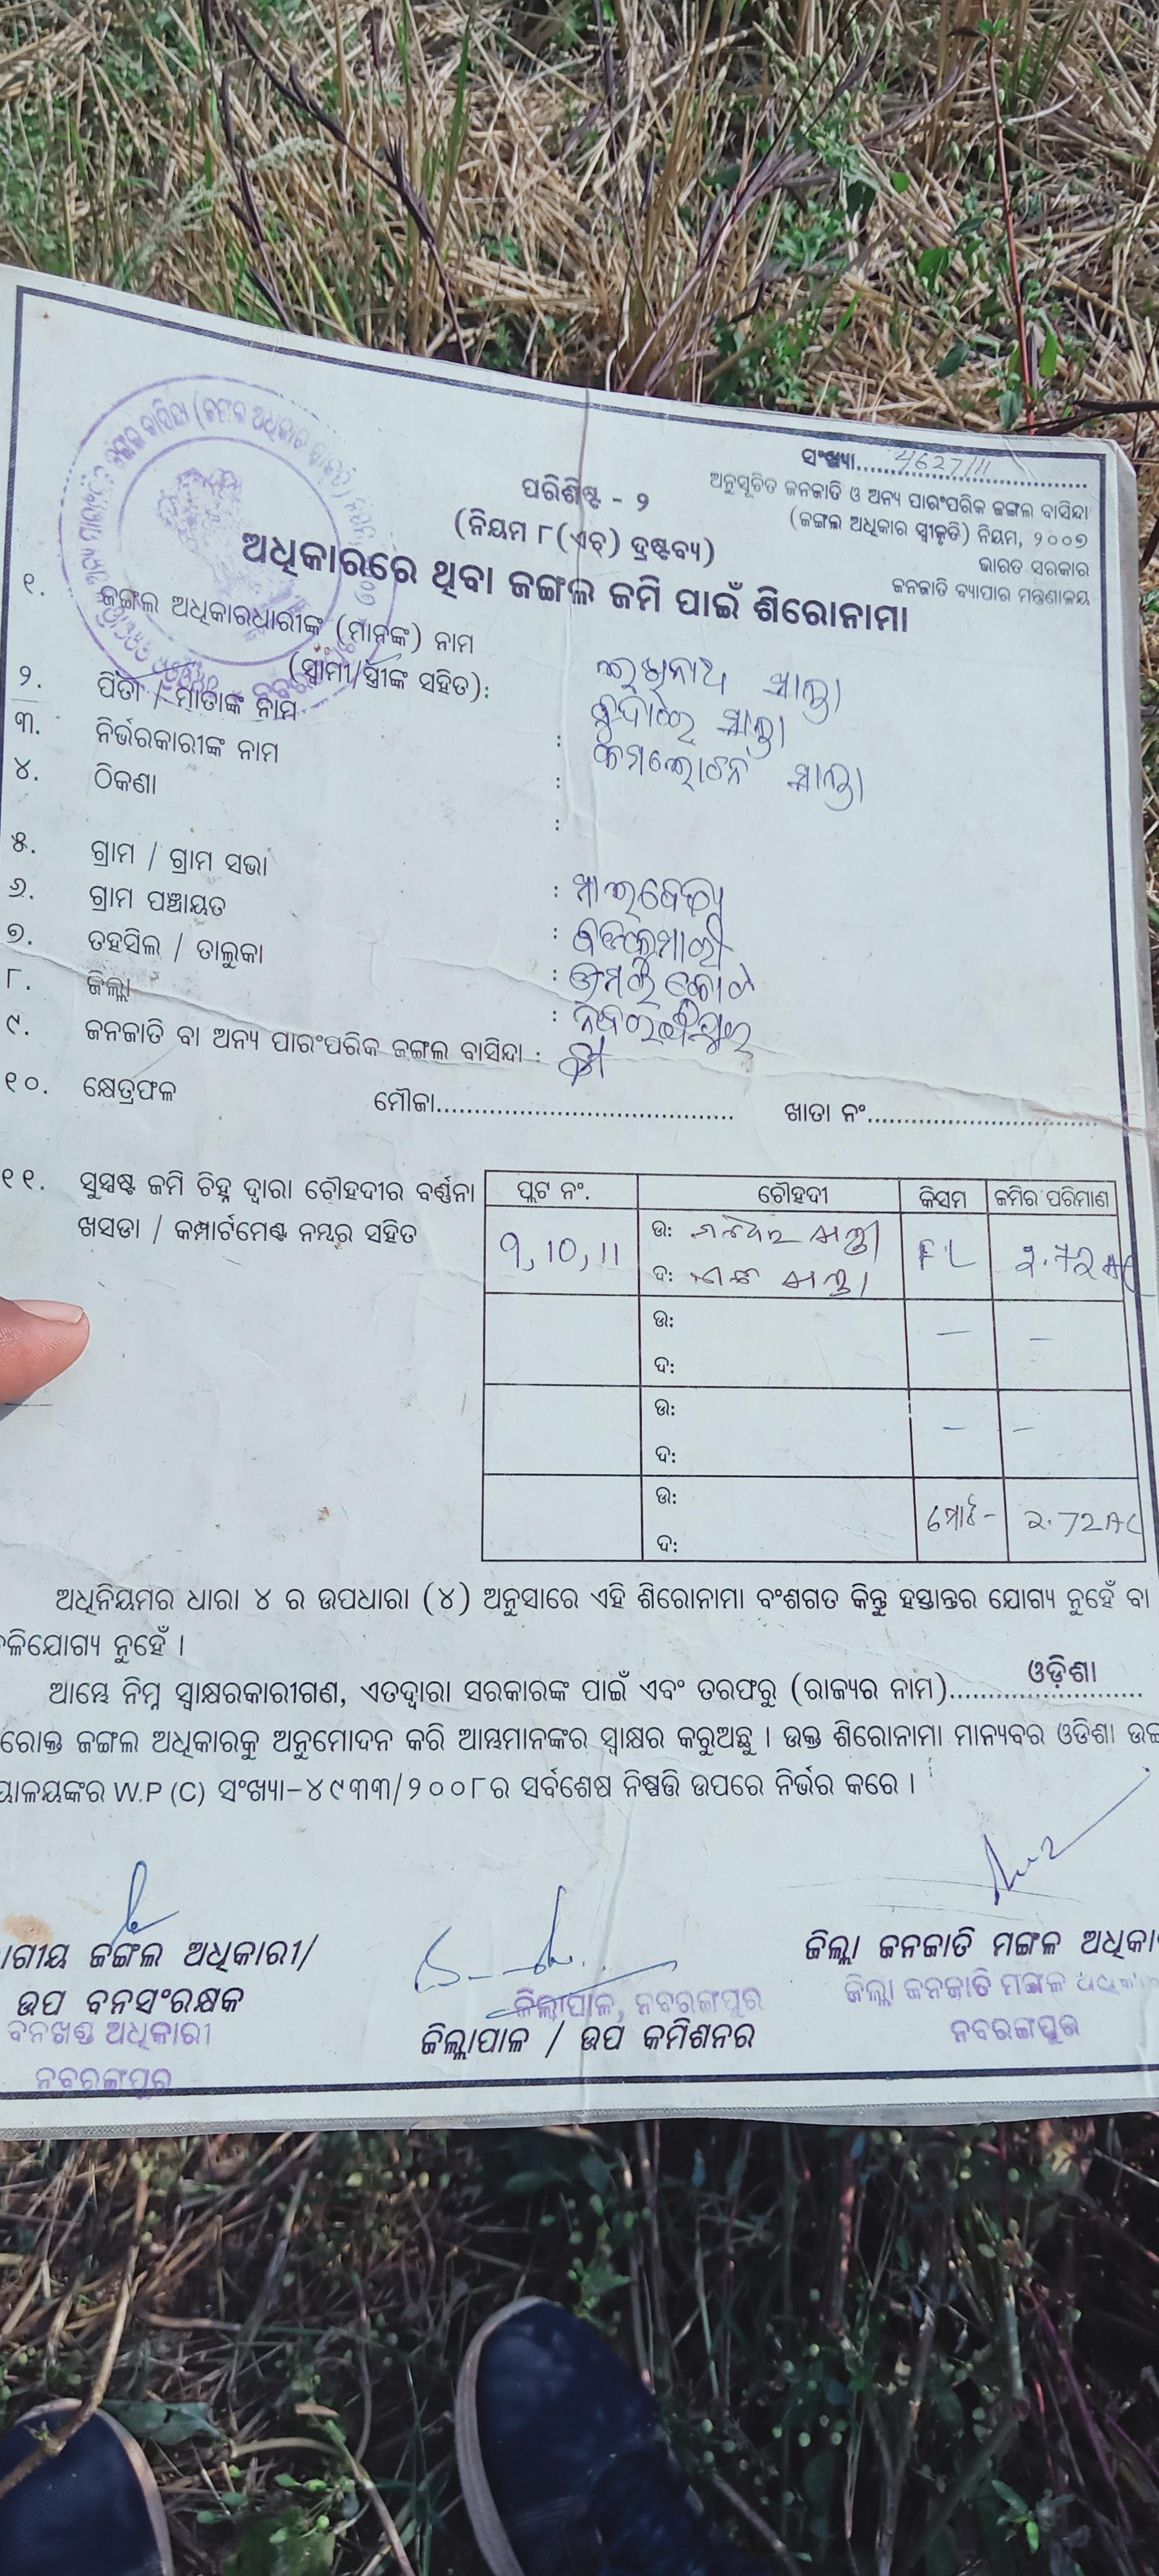 ସଂଖ୍ୟା....4627/11
ଅନୁସୂଚିତ ଜନଜାତି ଓ ଅନ୍ୟ ପାରଂପରିକ ଜଙ୍ଗଲ ବାସିନ୍ଦା
(ଜଙ୍ଗଲ ଅଧିକାର ସ୍ୱୀକୃତି) ନିୟମ, ୨୦୦୭
ଭାରତ ସରକାର
ଜନଜାତି ବ୍ୟାପାର ମନ୍ତ୍ରଣାଳୟ
ପରିଶିଷ୍ଟ - ୨
(ନିୟମ ୮(ଏଚ୍) ଦ୍ରଷ୍ଟବ୍ୟ)
ଅଧିକାରରେ ଥିବା ଜଙ୍ଗଲ ଜମି ପାଇଁ ଶିରୋନାମା
୧. ଜଙ୍ଗଲ ଅଧିକାରଧାରୀଙ୍କ (ମାନଙ୍କ) ନାମ
(ସ୍ୱାମୀ/ସ୍ତ୍ରୀଙ୍କ ସହିତ):
୨. ପିତା / ମାତାଙ୍କ ନାମ :
୩. ନିର୍ଭରକାରୀଙ୍କ ନାମ :
୪. ଠିକଣା :
୫. ଗ୍ରାମ / ଗ୍ରାମ ସଭା :
୬. ଗ୍ରାମ ପଞ୍ଚାୟତ :
୭. ତହସିଲ / ତାଲୁକା : ଉମରକୋଟ
୮. ଜିଲ୍ଲା : ନବରଙ୍ଗପୁର
୯. ଜନଜାତି ବା ଅନ୍ୟ ପାରଂପରିକ ଜଙ୍ଗଲ ବାସିନ୍ଦା :
୧୦. କ୍ଷେତ୍ରଫଳ ମୌଜା........ ଖାତା ନଂ........
୧୧. ସୁସ୍ପଷ୍ଟ ଜମି ଚିହ୍ନ ଦ୍ୱାରା ଚୌହଦୀର ବର୍ଣ୍ଣନା
ଖସଡା / କମ୍ପାର୍ଟମେଣ୍ଟ ନମ୍ବର ସହିତ
ପ୍ଲଟ ନଂ. ଚୌହଦୀ କିସମ ଜମିର ପରିମାଣ
9, 10, 11 ଉ: FL ୨.72 AC
ଦ:
ଉ: — —
ଦ:
ଉ: — —
ଦ:
ଉ: ମୋଟ- ୨.72AC
ଦ:
ଅଧିନିୟମର ଧାରା ୪ ର ଉପଧାରା (୪) ଅନୁସାରେ ଏହି ଶିରୋନାମା ବଂଶଗତ କିନ୍ତୁ ହସ୍ତାନ୍ତର ଯୋଗ୍ୟ ନୁହେଁ ବା
ଳିଯୋଗ୍ୟ ନୁହେଁ ।
ଆମ୍ଭେ ନିମ୍ନ ସ୍ୱାକ୍ଷରକାରୀଗଣ, ଏତଦ୍ୱାରା ସରକାରଙ୍କ ପାଇଁ ଏବଂ ତରଫରୁ (ରାଜ୍ୟର ନାମ)....ଓଡ଼ିଶା....
ରୋକ୍ତ ଜଙ୍ଗଲ ଅଧିକାରକୁ ଅନୁମୋଦନ କରି ଆମ୍ଭମାନଙ୍କର ସ୍ୱାକ୍ଷର କରୁଅଛୁ । ଉକ୍ତ ଶିରୋନାମା ମାନ୍ୟବର ଓଡିଶା ଉଚ୍ଚ
ୟାଳୟଙ୍କର W.P (C) ସଂଖ୍ୟା-୪୯୩୩/୨୦୦୮ର ସର୍ବଶେଷ ନିଷ୍ପତ୍ତି ଉପରେ ନିର୍ଭର କରେ ।
ାଗୀୟ ଜଙ୍ଗଲ ଅଧିକାରୀ/
ଉପ ବନସଂରକ୍ଷକ
ବନଖଣ୍ଡ ଅଧିକାରୀ
ନବରଙ୍ଗପୁର
ଜିଲ୍ଲାପାଳ, ନବରଙ୍ଗପୁର
ଜିଲ୍ଲାପାଳ / ଉପ କମିଶନର
ଜିଲ୍ଲା ଜନଜାତି ମଙ୍ଗଳ ଅଧିକା
ଜିଲ୍ଲା ଜନଜାତି ମଙ୍ଗଳ
ନବରଙ୍ଗପୁର